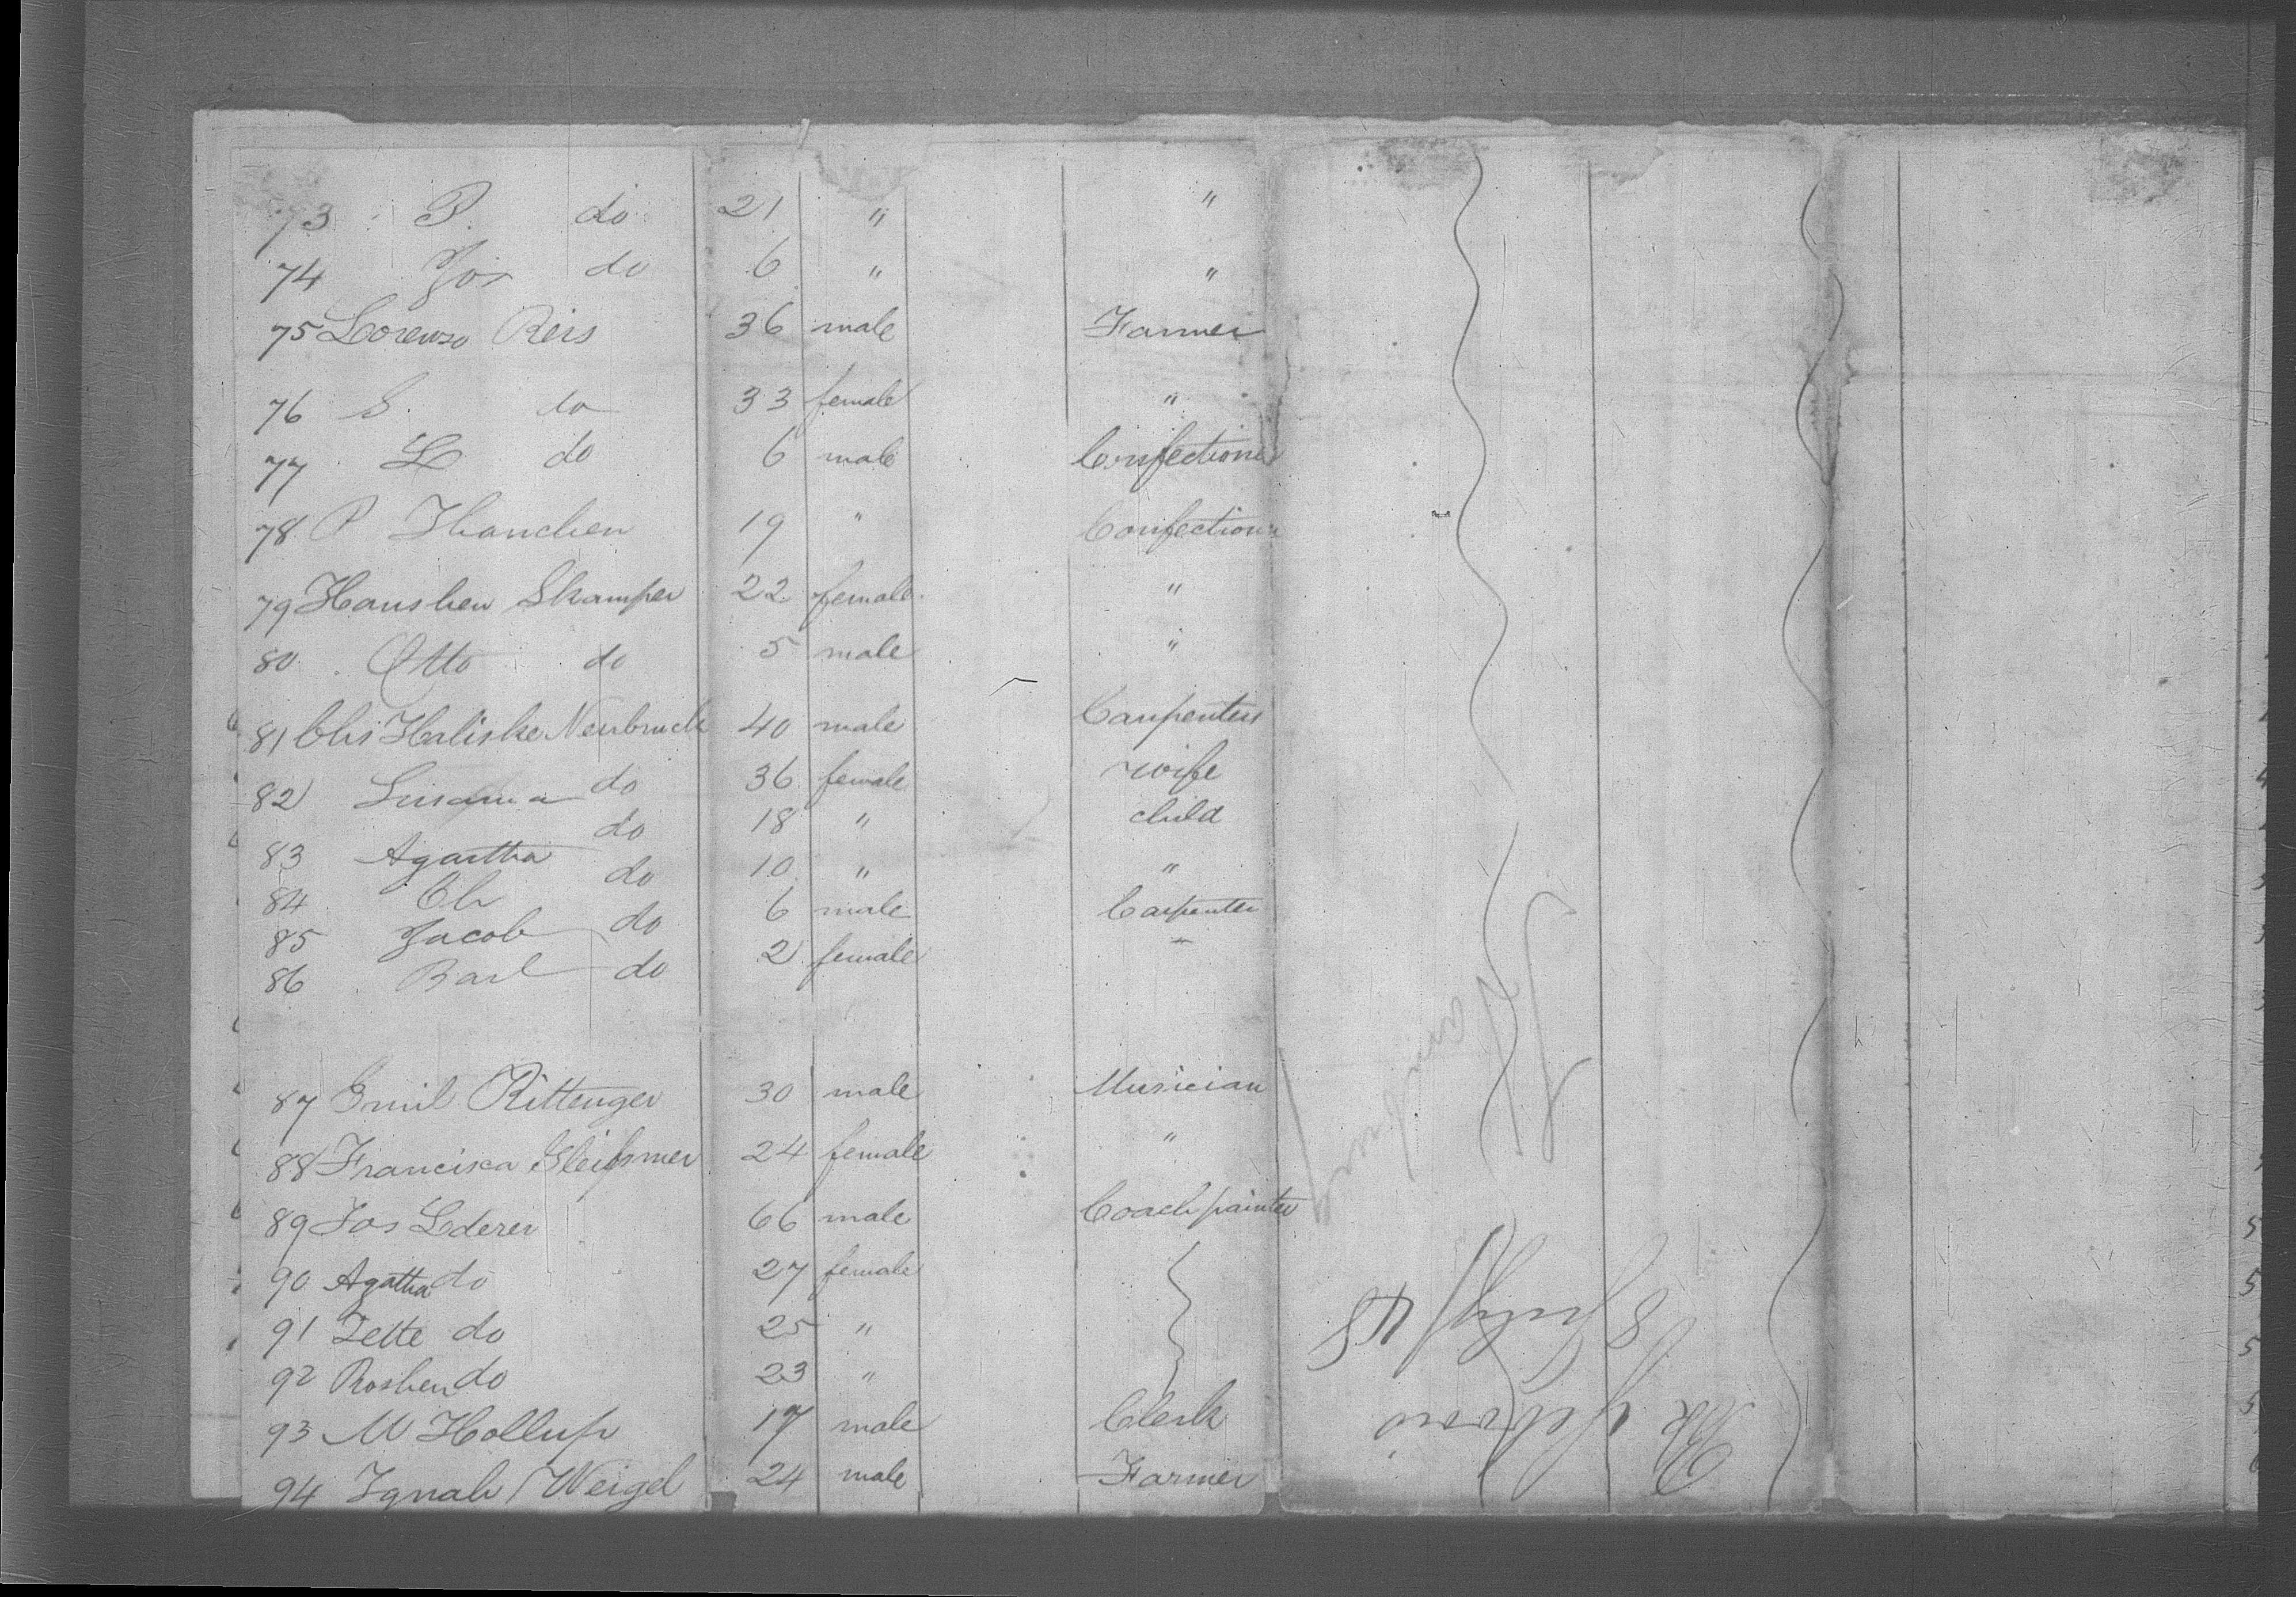 73 P. do 21 " "
74 Jos do 6 " "
75 Lorenzo Reis 36 male Farmer
76 S. do 33 female "
77 L do 6 male Confectioner
78 P Thanchen 19 " Confectioner
79 Hanshen Skamper 22 female "
80 Otto do 5 male "
81 Chs Haliske Neubruck 40 male Carpenters
82 Susanna do 36 female wife
83 Agartha do 18 " child
84 Ch do 10 " "
85 Jacob do 6 male Carpenter
86 Barl do 2 female "
87 Emil Rittenger 30 male Musician
88 Francisca Gleihsmer 24 female "
89 Jos Lederer 66 male Coach painter
90 Agatha do 27 female
91 Zette do 25 "
92 Roshen do 23 "
93 M Hollup 17 male Clerk
94 Ignah Weigel 24 male Farmer